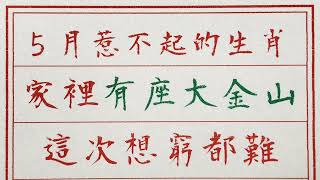 5月惹不起的生肖
家裡有座大金山
這次想窮都難